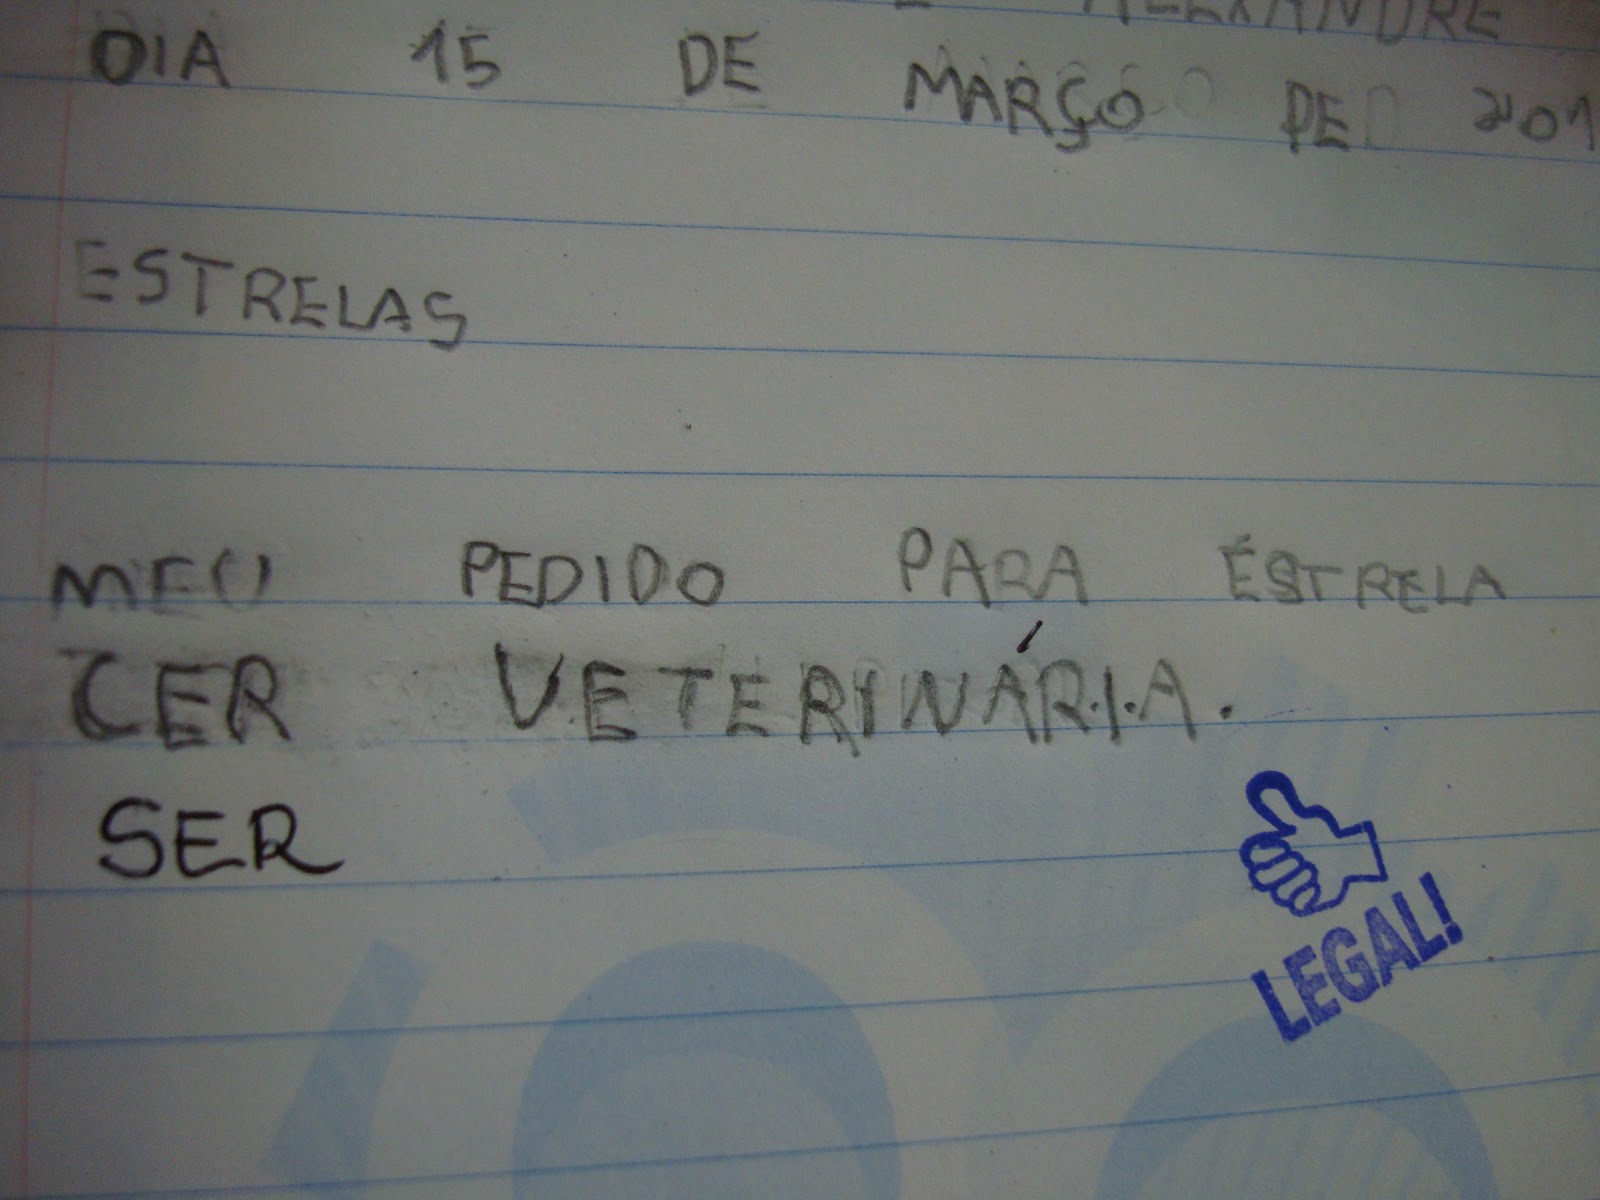 ALEXANDRE
DIA 15 DE MARÇO DE 201
ESTRELAS
MEU PEDIDO PARA ESTRELA
CER VETERINÁRIA.
SER
LEGAL!